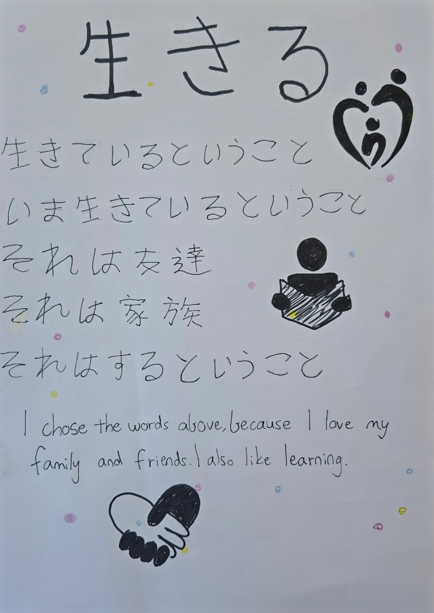 生きる
生きているということ
いま生きているということ
それは友達
それは家族
それはするということ
I chose the words above, because I love my
family and friends. I also like learning.